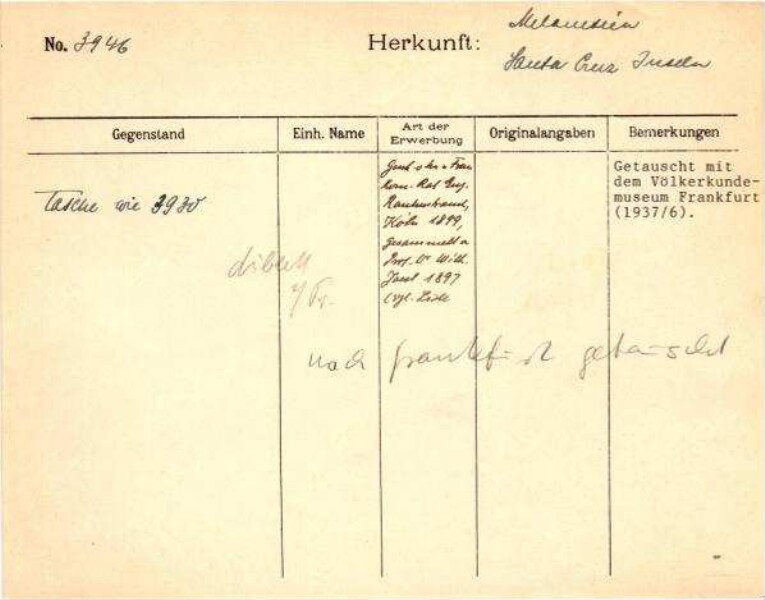 No. 3946
Herkunft:
Melanesien
Santa Cruz Inseln
Gegenstand
Einh. Name
Art der
Erwerbung
Originalangaben
Bemerkungen
Tasche wie 3930
Frau
Kom. Rat Eug.
Rautenstrauch,
Köln 1899,
gesammelt v.
Prof. Dr Wilh.
Joest 1897
(vgl. Liste
Getauscht mit
dem Völkerkunde-
museum Frankfurt
(1937/6).
nach Frankfurt getauscht